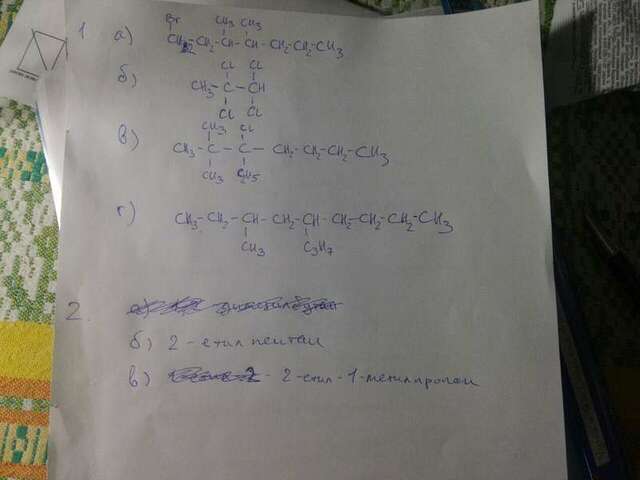 Br CH3 CH3
1 а) CH2-CH2-CH-CH-CH2-CH2-CH3
Cl Cl
б) CH3-C-CH
Cl Cl
CH3 Cl
в) CH3-C-C-CH2-CH2-CH2-CH3
CH3 C2H5
г) CH3-CH2-CH-CH2-CH-CH2-CH2-CH2-CH3
CH3 C3H7
2.
б) 2-етил пентан
в) 2-етил-1-метилпропан